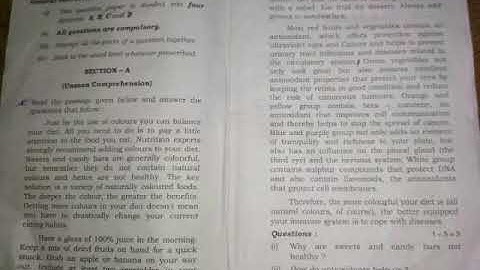 (i) This question paper is divided into four
sections: A, B, C and D
(ii) All questions are compulsory.
(iii) Attempt all the parts of a question together.
(iv) Stick to the word limit wherever prescribed.
SECTION – A
(Unseen Comprehension)
Read the passage given below and answer the
questions that follow :
Just by the use of colours you can balance
your diet. All you need to do is to pay a little
attention to the food you eat. Nutrition experts
strongly recommend adding colours to your diet.
Sweets and candy bars are generally colourful,
but remember they do not contain natural
colours and hence are not healthy. The key
solution is a variety of naturally coloured foods.
The deeper the colour, the greater the benefits.
Getting more colours in your diet doesn't mean
you have to drastically change your current
eating habits.
Have a glass of 100% juice in the morning.
Keep a mix of dried fruits on hand for a quick
snack. Grab an apple or banana on your way
out. Include at least two vegetables
with a salad. For dessert. Always add
Most red fruits and vegetables contain an
antioxidant, which offers protection against
ultraviolet rays and cancer and helps to prevent
urinary tract infections and diseases related to
the circulatory system. Green vegetables not
only look great but also possess excellent
antioxidant properties that protect your eyes by
keeping the retina in good condition and reduce
the risk of cancerous tumours. Orange and
yellow group contain beta - carotene, an
antioxidant that improves cell communication
and thereby helps to stop the spread of cancer.
Blue and purple group not only adds an element
of tranquility and richness to your plate, but
also has an influence on the pineal gland (the
third eye) and the nervous system. White group
contains sulphur compounds that protect DNA
and also contain flavonoids, the antioxidants
that protect cell membranes.
Therefore, the more colourful your diet is (all
natural colours, of course), the better equipped
your immune system is to cope with diseases.
Questions : 1×5=5
(i) Why are sweets and candy bars not
healthy ?
(ii) How do antioxidants help us ?